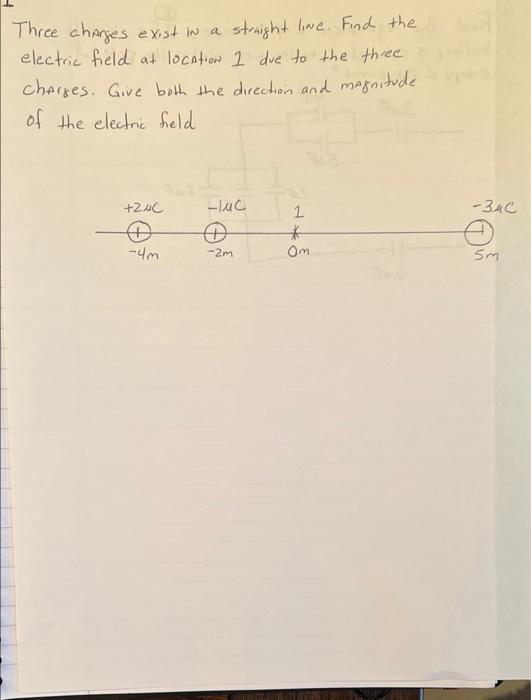 Three charges exist in a straight line. Find the
electric field at location 1 due to the three
charges. Give both the direction and magnitude
of the electric field
+2μC -1μC 1 -3μC
-4m -2m 0m 5m